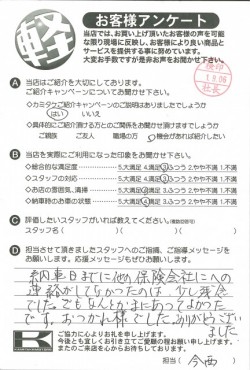 軽
お客様アンケート
当店では、お買い上げ頂いたお客様の声を可能
な限り現場に反映し、お客様により良い商品と
サービスを提供する事に努めています。
大変お手数ですが是非お声をお聞かせ下さい。
社長
A 当店はご紹介を大切にしております。
ご紹介キャンペーンについてお聞かせ下さい。
◇カミタケご紹介キャンペーンのご説明はありましたでしょうか
はい いいえ
◇具体的にご紹介頂ける方との関係をお聞かせ頂けますでしょうか
ご親類 ご友人 職場の方 機会があればご紹介
B 当店を実際にご利用になった印象をお聞かせ下さい。
◇総合的な満足度 5.大満足 4.満足 3.ふつう 2.やや不満 1.不満
◇スタッフの対応 5.大満足 4.満足 3.ふつう 2.やや不満 1.不満
◇お店の雰囲気、清掃 5.大満足 4.満足 3.ふつう 2.やや不満 1.不満
◇納車時のお車の状態 5.大満足 4.満足 3.ふつう 2.やや不満 1.不満
C 評価したいスタッフがいれば教えてください。(複数回答可)
スタッフ名( )( )( )
D 担当させて頂きましたスタッフへのご指摘、ご指導メッセージを
お願いします。応援メッセージもぜひお願いします。
納車日までに他の保険会社にへの
連絡ができてなかったのは、少し残念
でした。でもなんとかまにあってよかった
です。おつかれ様でした。ありがとうござい
ました
K
ご協力に心よりお礼を申し上げます。
今後とも宜しくお引き立てご愛顧の程お願い申し上げます。
またのご来店を心よりお待ちしております。
担当( 今西 )